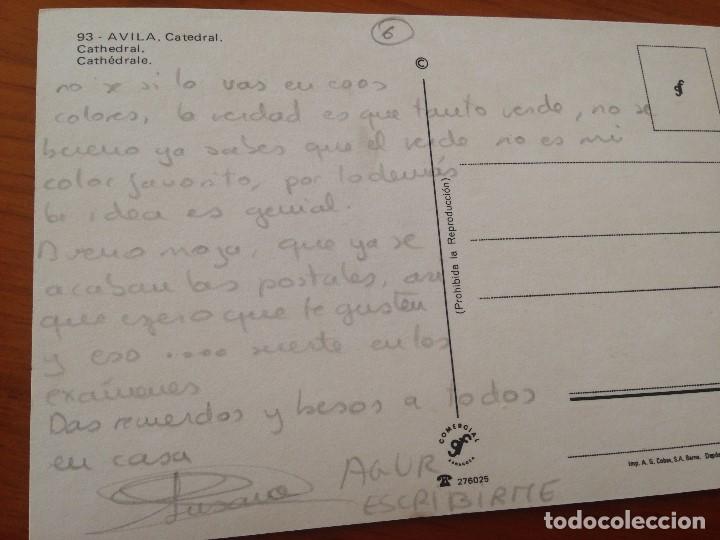 93 - AVILA. Catedral.
Cathedral.
Cathédrale.
6
©
no se si lo vas en esos
colores, la verdad es que tanto verde, no se
bueno ya sabes que el verde no es mi
color favorito, por lo demás
la idea es genial.
Bueno moza, que ya se
acaban las postales, asi
que espero que te gusten
y eso .... suerte en los
exámenes
Das recuerdos y besos a todos
en casa
Susana
AGUR
ESCRIBIRME
(Prohibida la Reproducción)
COMERCIAL
ZARAGOZA
☎ 276025
Imp. A. G. Cobas, S.A. Barna.
todocoleccion